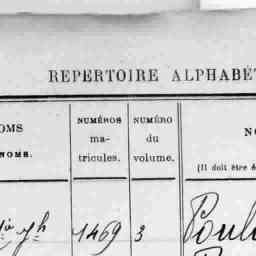 REPERTOIRE ALPHABÉT
OMS
NOMS.
NUMÉROS
ma-
tricules.
NUMÉRO
du
volume.
NO
(Il doit être é
1469
3
Poul